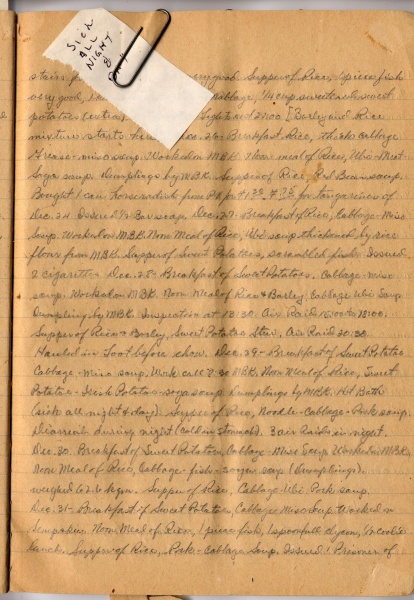 Sick
ALL
NIGHT
&
stairs, very good. Supper of Rice, 1 piece fish
very good, cabbage, 1/4 cup sweetened sweet
potatoes lights out 2100 [Barley and Rice
mixture starts Dec. 26 - Breakfast Rice, thick cabbage
grease - miso soup. Worked on M.B.K. Noon meal of Rice, Ubi-Meat
soya soup. Dumplings by M.B.K. Supper of Rice, Red Bean soup.
Bought 1 can for tangerines of
Dec. 24. Issued 1/2 Bar soap. Dec. 27 - Breakfast of Rice, Cabbage - Miso
Soup. Worked on M.B.K. Noon Meal of Rice, Ubi soup thickened by rice
flour from M.B.K. Supper of Sweet Potatoes, scrambled fish. Issued
2 cigarettes. Dec. 28 - Breakfast of Sweet Potatoes, Cabbage - miso
soup. Worked on M.B.K. Noon Meal of Rice & Barley, Cabbage Ubi Soup
Dumpling by M.B.K. Inspection at 13:30. Air Raid 1500 to 1800.
Supper of Rice & Barley, Sweet Potatoes Stew. Air Raid 20:30
Hauled in Loot before chow. Dec. 29 - Breakfast of Sweet Potatoes
Cabbage - Miso soup, Work call 7:30 M.B.K. Noon Meal of Rice, Sweet
Potatoes - Irish Potatoes - soya soup. Dumplings by M.B.K. Hot Bath
(sick all night & day). Supper of Rice, Noodle - Cabbage - Pork soup.
Diarreah during night (cold in stomach). 3 air Raids in night.
Dec. 30. Breakfast of Sweet Potatoes, Cabbage - Miso Soup. Worked in M.B.K.
Noon Meal of Rice, Cabbage - fish - soya soup (& dumplings).
weighed 62.6 kgm. Supper of Rice, Cabbage Ubi Pork soup.
Dec. 31 - Breakfast of Sweet Potatoes, Cabbage Miso Soup. Worked in
Noon Meal of Rice, 1 piece fish, 1 spoonfull
lunch. Supper of Rice, Pork - Cabbage Soup. Issued 1 Prisoner of